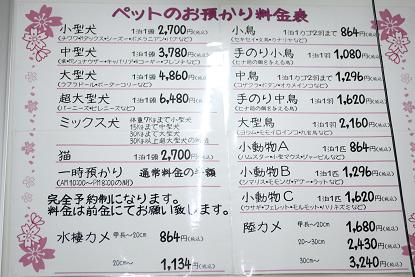 ペットのお預かり料金表
小型犬 1泊1頭 2,700円(税込)
(チワワ・ダックス・シーズー・ポメラニアン・パグなど)
中型犬 1泊1頭 3,780円(税込)
大型犬 1泊1頭 4,860円(税込)
(ラブラドール・ボーダーコリーなど)
超大型犬 1泊1頭 6,480円(税込)
(バーニーズ・ピレニーズなど)
ミックス犬 体重7kgまで小型犬
15kgまで中型犬
30kgまで大型犬
30kg以上超大型犬の料金
猫 1泊1頭 2,700円(税込)
一時預かり 通常料金の半額
(AM10:00~PM8:00の間)
完全予約制になります。
料金は前金にてお願い致します。
水棲カメ 甲長~20cm 864円(税込)
20cm~ 1,134円(税込)
小鳥 1泊1カゴ2羽まで 864円(税込)
(ジュウシマツ・文鳥・カナリアなど)
手のり小鳥 1泊1羽 1,080円(税込)
(ヒナ期の餌もこちらを含む)
中鳥 1泊1カゴ2羽まで 1,296円(税込)
(コザクラ・ボタン・オカメインコなど)
手のり中鳥 1泊1羽 1,620円(税込)
(ヒナ期の餌もこちらを含む)
大型鳥 1泊1羽 2,160円(税込)
(ヨウム・モモイロインコ・九官鳥など)
小動物A 1泊1匹 864円(税込)
(ハムスター・小型マウス・ジャービルなど)
小動物B 1泊1匹 1,296円(税込)
(シマリス・モモンガ・デグー・ラットなど)
小動物C 1泊1匹 1,620円(税込)
(ウサギ・フェレット・モルモット・ハリネズミなど)
陸カメ 甲長~20cm 1,680円(税込)
20~30cm 2,430円(税込)
30cm~ 3,240円(税込)